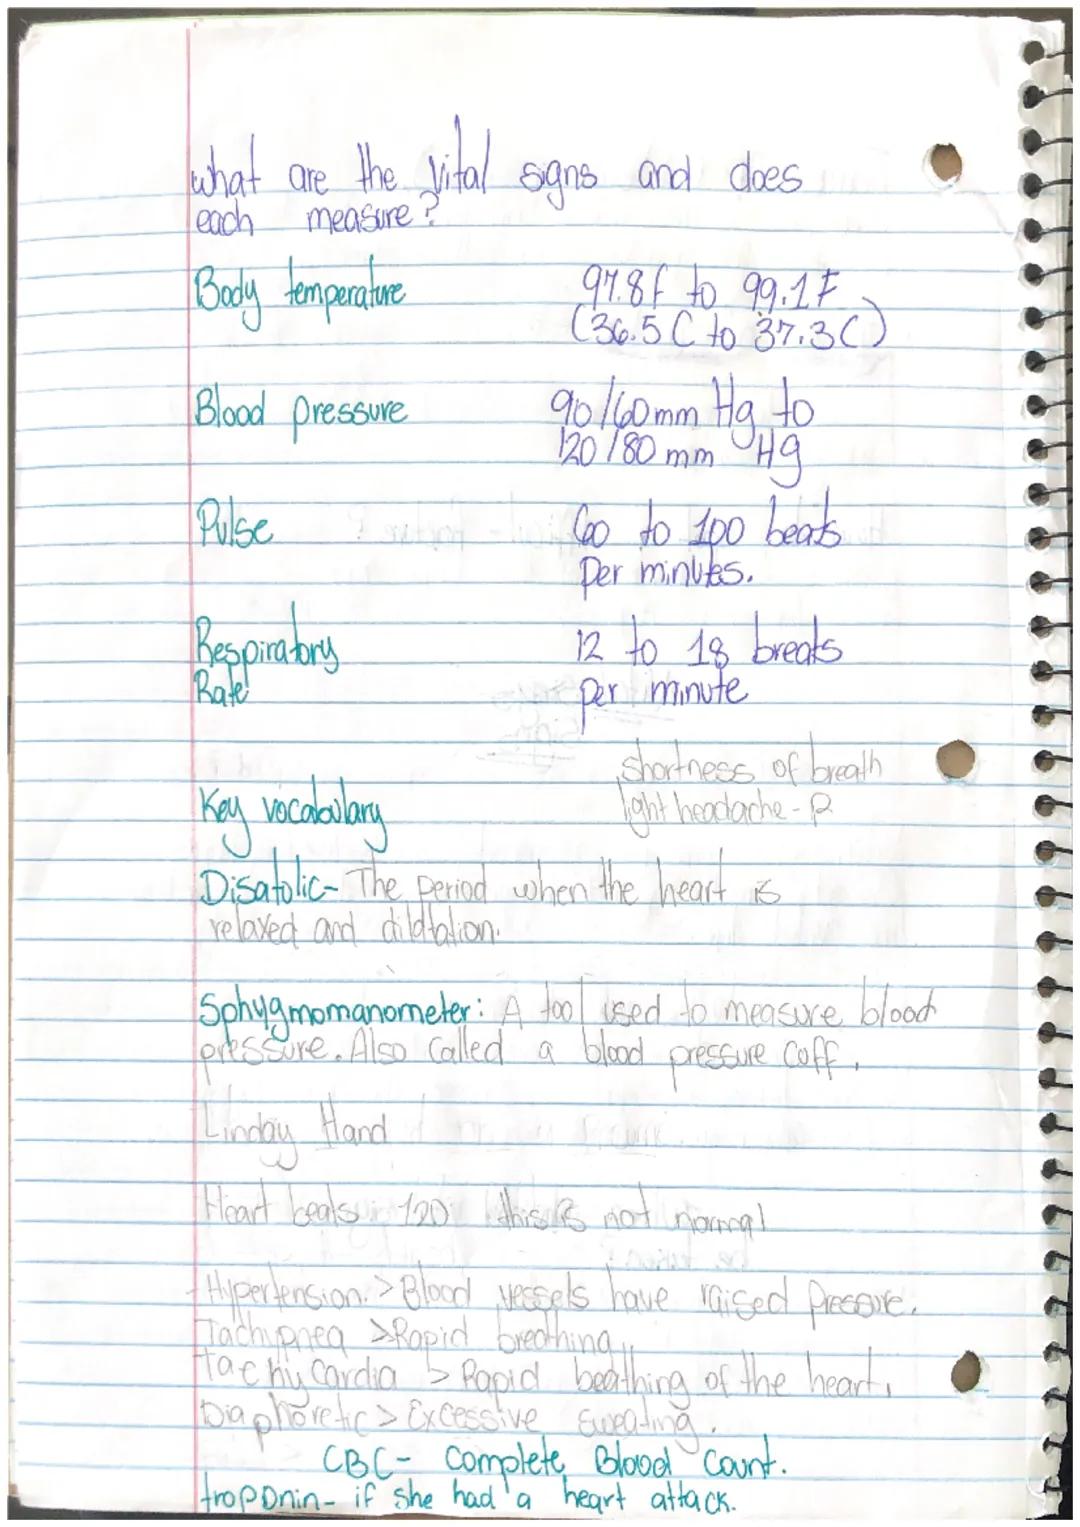 what are the vital signs and does
each measure?
Body temperature 97.8f to 99.1F
(36.5 C to 37.3C)
Blood pressure 90/60mm Hg to
120/80 mm Hg
Pulse 60 to 100 beats
Per minutes.
Respiratory 12 to 18 breats
Rate per minute
shortness of breath
Key vocabulary light headache - P
Disatolic- The period when the heart is
relaxed and dildtation.
Sphygmomanometer: A tool used to measure blood
pressure. Also called a blood pressure Coff.
Linday Hand
Heart beats: 120 this is not normal
Hypertension: > Blood vessels have raised pressure.
Tachipnea > Rapid breathing
tachycardia > Rapid beathing of the heart.
Diaphoretic > Excessive sweating.
CBC- Complete Blood Count.
troponin- if she had a heart attack.